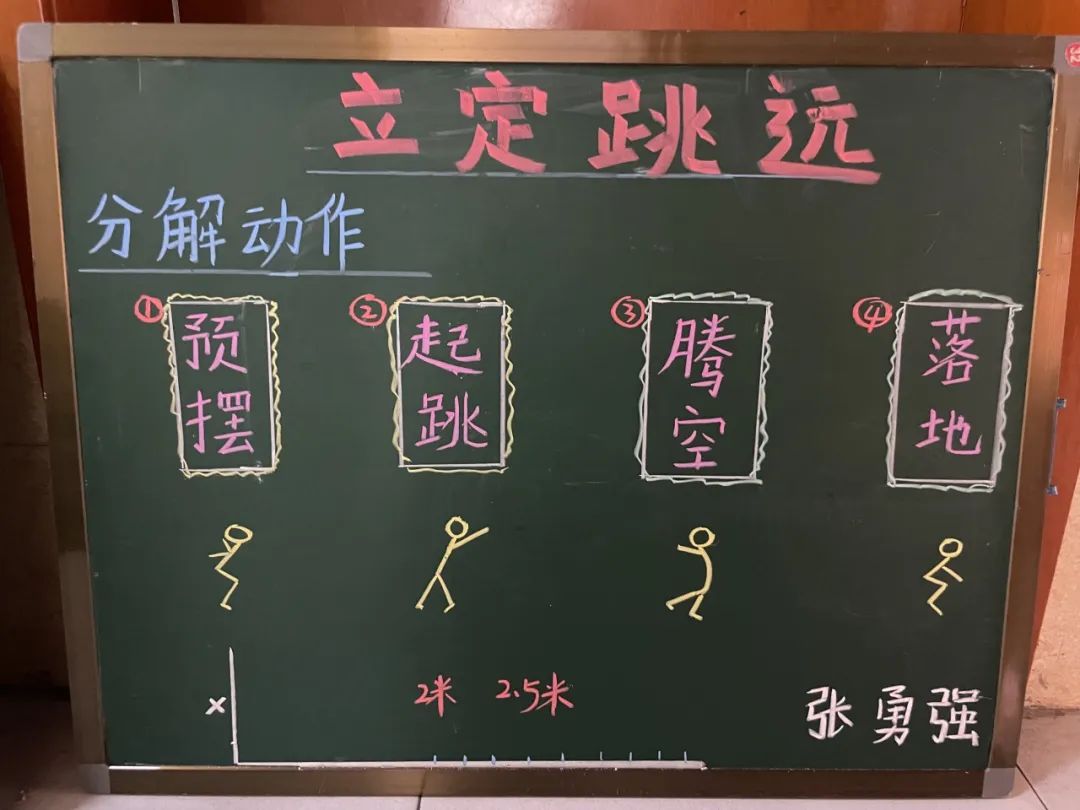 立定跳远
分解动作
① 预摆 ② 起跳 ③ 腾空 ④ 落地
× 2米 2.5米 张勇强